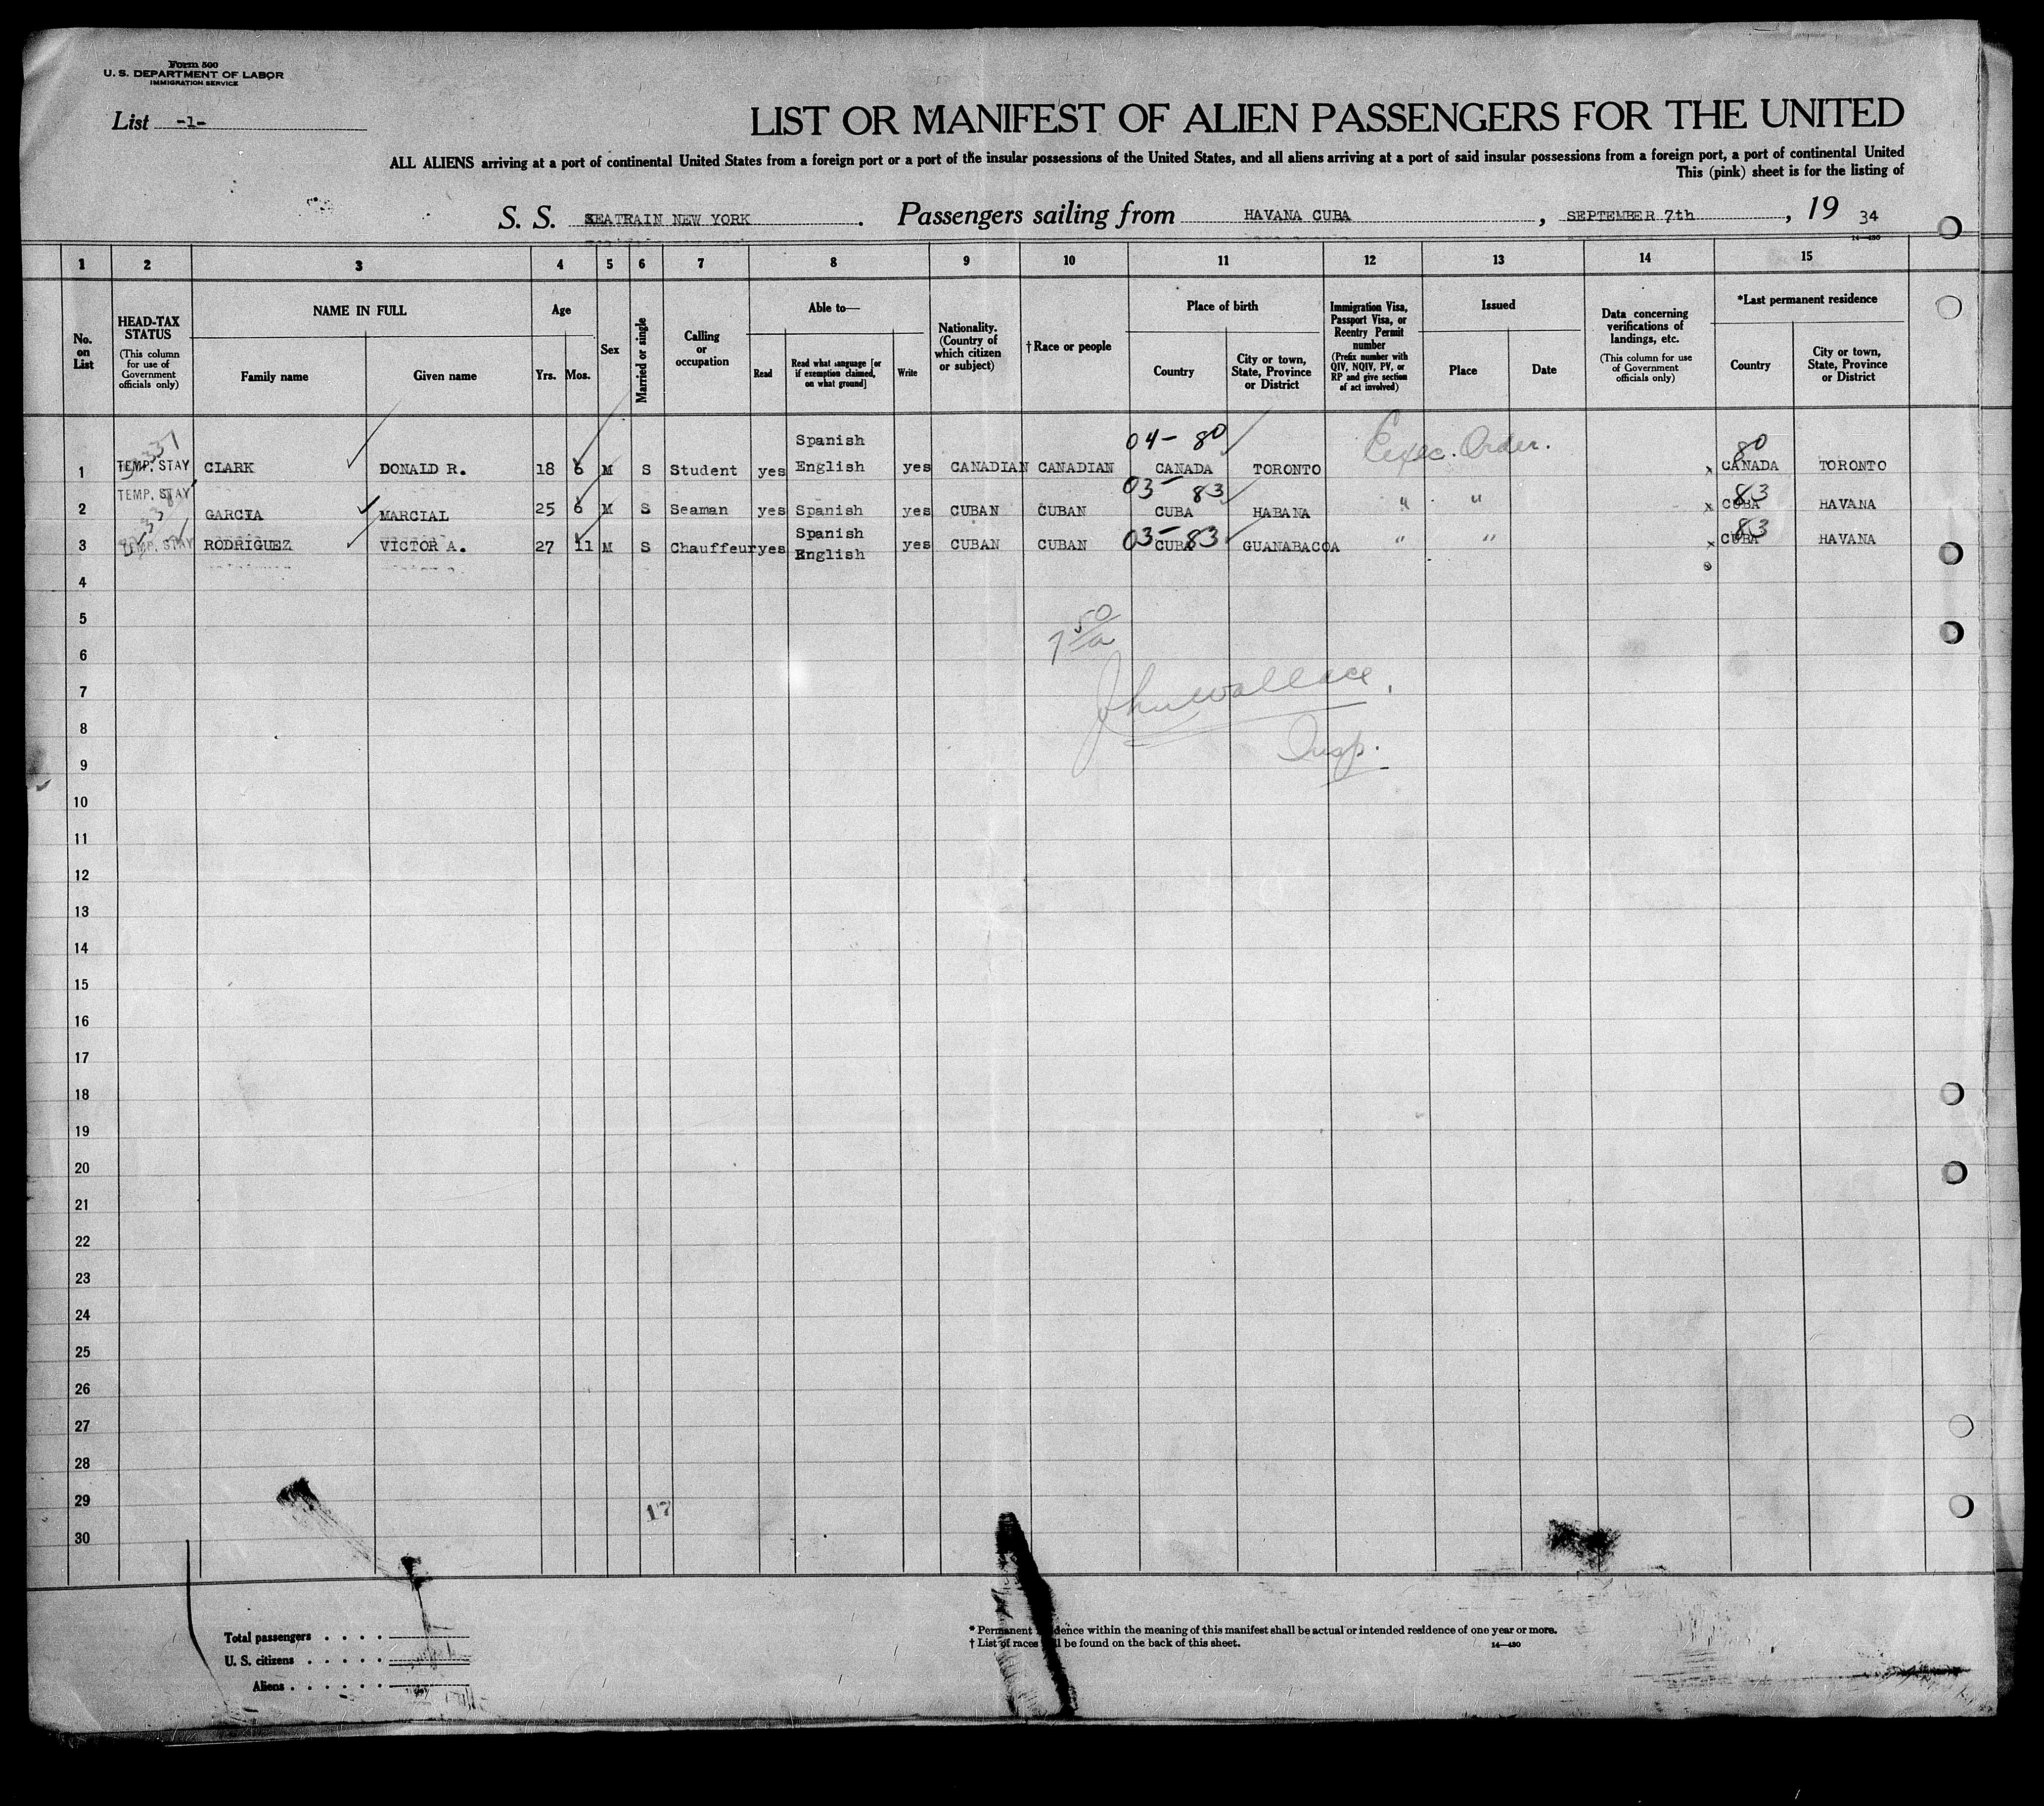 Form 500
U. S. DEPARTMENT OF LABOR
IMMIGRATION SERVICE
List -1-
LIST OR MANIFEST OF ALIEN PASSENGERS FOR THE UNITED
ALL ALIENS arriving at a port of continental United States from a foreign port or a port of the insular possessions of the United States, and all aliens arriving at a port of said insular possessions from a foreign port, a port of continental United
This (pink) sheet is for the listing of
S. S. SEATRAIN NEW YORK . Passengers sailing from HAVANA CUBA , SEPTEMBER 7th , 19 34
14—430
1 2 3 4 5 6 7 8 9 10 11 12 13 14 15
No. on List
HEAD-TAX STATUS (This column for use of Government officials only)
NAME IN FULL
Family name Given name
Age
Yrs. Mos.
Sex
Married or single
Calling or occupation
Able to—
Read
Read what language [or if exemption claimed, on what ground]
Write
Nationality. (Country of which citizen or subject)
†Race or people
Place of birth
Country
City or town, State, Province or District
Immigration Visa, Passport Visa, or Reentry Permit number (Prefix number with QIV, NQIV, PV, or RP and give section of act involved)
Issued
Place Date
Data concerning verifications of landings, etc. (This column for use of Government officials only)
*Last permanent residence
Country
City or town, State, Province or District
04- 80 Exec. Order. 80
1 TEMP. STAY CLARK DONALD R. 18 6 M S Student yes Spanish English yes CANADIAN CANADIAN CANADA TORONTO x CANADA TORONTO
03- 83 83
2 TEMP. STAY GARCIA MARCIAL 25 6 M S Seaman yes Spanish yes CUBAN CUBAN CUBA HABANA " " x CUBA HAVANA
03- 83 83
3 TEMP. STAY RODRIGUEZ VICTOR A. 27 11 M S Chauffeur yes Spanish English yes CUBAN CUBAN CUBA GUANABACOA " " x CUBA HAVANA
4
5
6
7
John Wallace.
8
Insp.
9
10
11
12
13
14
15
16
17
18
19
20
21
22
23
24
25
26
27
28
29
17
30
Total passengers . . . .
U. S. citizens . . . . .
Aliens . . . . . .
* Permanent dence within the meaning of this manifest shall be actual or intended residence of one year or more.
† List of races ll be found on the back of this sheet. 14—430